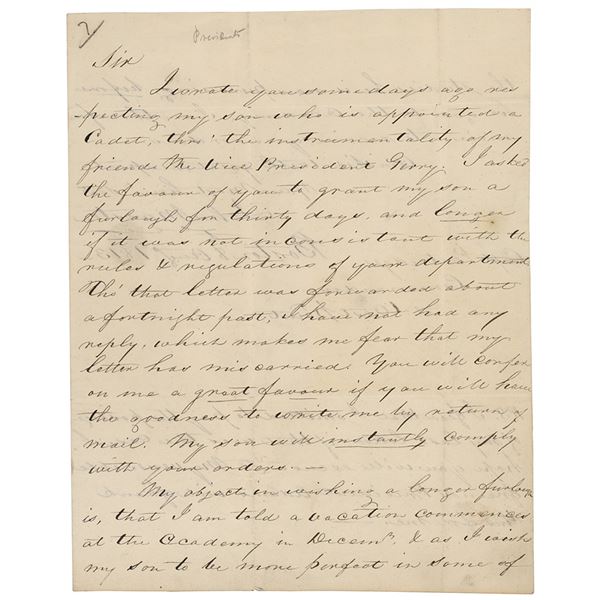 2/
Presidents
Sir
I wrote you some days ago res
-pecting my son who is appointed a
Cadet, thro' the instrumentality of my
friend the Vice President Gerry. I asked
the favour of you to grant my son a
furlough for thirty days, and longer
if it was not inconsistant with the
rules & regulations of your department
Tho' that letter was forwarded about
a fortnight past, I have not had any
reply, which makes me fear that my
letter has miscarried. You will confer
on me a great favour if you will have
the goodness to write me by return of
mail. My son will instantly comply
with your orders. —
My object in wishing a longer furlough
is, that I am told a vacation commences
at the Academy in Decemr. & as I wish
my son to be more perfect in some of